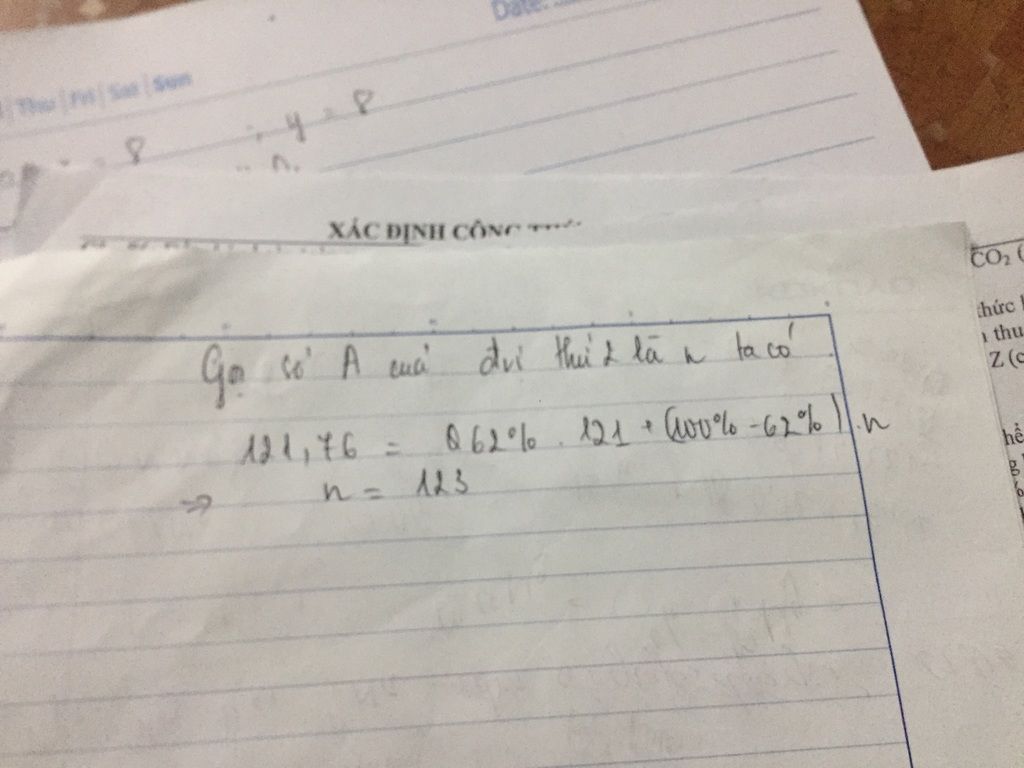 Date:
Thu | Fri | Sat | Sun
= 8 ; y = 8
n.
XÁC ĐỊNH CÔNG
CO₂
thức
thu
Z
Gọi số A của đvị thứ 2 là n ta có
121,76 = 62% . 121 + (100% - 62%) . n
=> n = 123